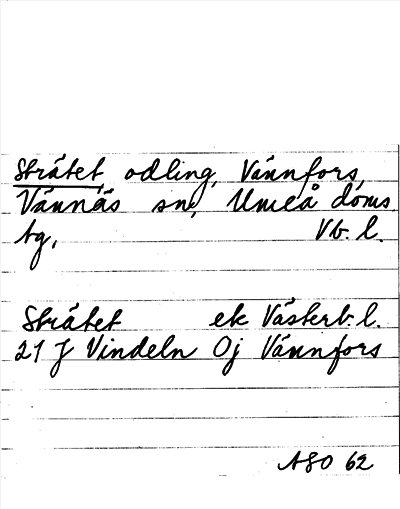 Stråtet, odling, Vännfors,
Vännäs sn, Umeå doms
tg, Vb. l.
Stråtet ek Västerb. l.
21 J Vindeln Oj Vännfors
ASO 62